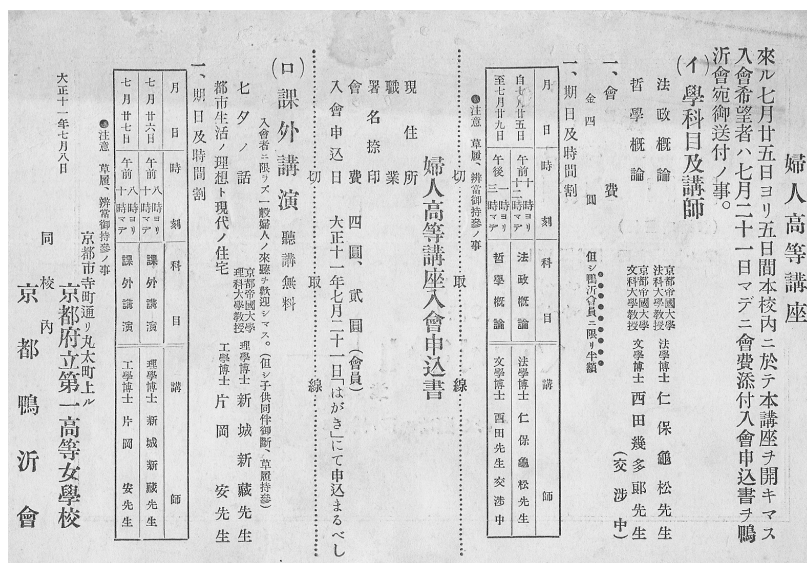 婦人高等講座
來ル七月廿五日ヨリ五日間本校内ニ於テ本講座ヲ開キマス
入會希望者ハ七月二十一日マデニ會費添付入會申込書ヲ鴨
沂會宛御送付ノ事。
(イ)學科目及講師
法政概論 京都帝國大學 法科大學教授 法學博士 仁保龜松先生
哲學概論 京都帝國大學 文科大學教授 文學博士 西田幾多郎先生
(交渉中)
一、會費
金四圓 但シ鴨沂會員ニ限リ半額
一、期日及時間割
月日 時刻 科目 講師
自七月廿五日 午前十時ヨリ十二時マデ 法政概論 法學博士 仁保龜松先生
至七月廿九日 午後一時ヨリ三時マデ 哲學概論 文學博士 西田先生交渉中
注意 草履、辨當御持參ノ事
切取線
婦人高等講座入會申込書
現住所
職業
署名捺印
會費 四圓、貳圓(會員)
入會申込日 大正十一年七月二十一日「はがき」にて申込まるべし
切取線
(ロ)課外講演 聽講無料
入會者ニ限ラズ一般婦人ノ來聽ヲ歡迎シマス。(但シ子供同伴御斷、草履持參)
七夕ノ話 京都帝國大學 理科大學教授 理學博士 新城新藏先生
都市生活ノ理想ト現代ノ住宅 工學博士 片岡安先生
一、期日及時間割
月日 時刻 科目 講師
七月廿六日 午前八時ヨリ十時マデ 課外講演 理學博士 新城新藏先生
七月廿七日 午前八時ヨリ十時マデ 課外講演 工學博士 片岡安先生
注意 草履、辨當御持參ノ事
大正十一年七月八日
京都市寺町通リ丸太町上ル
京都府立第一高等女學校
同校内
京都鴨沂會